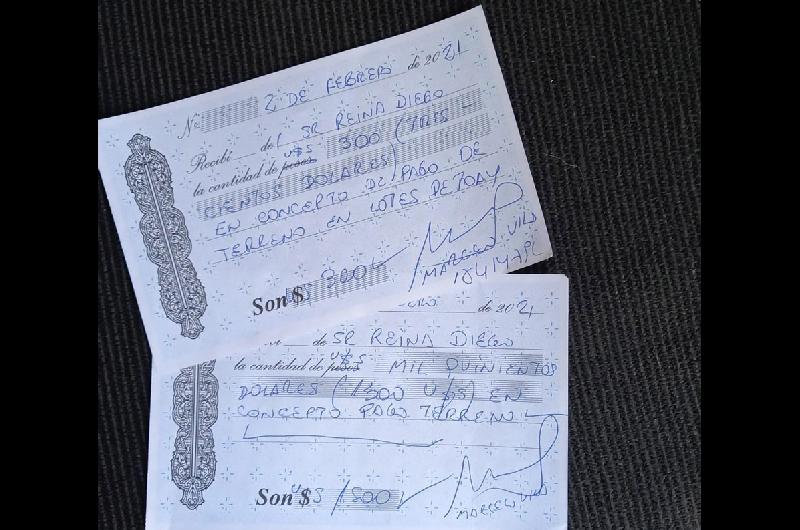 Nº 2 DE FEBRERO de 2021
Recibí del SR REINA DIEGO
la cantidad de pesos U$S 300 (TRES-
CIENTOS DOLARES)
EN CONCEPTO DE PAGO DE
TERRENO EN LOTES DE TOAY
Son $ 300
MARCELO VILA
de 2021
de SR REINA DIEGO
la cantidad de pesos U$S MIL QUINIENTOS
DOLARES (1500 U$S) EN
CONCEPTO PAGO TERRENO
Son U$S 1500
MARCELO VILA